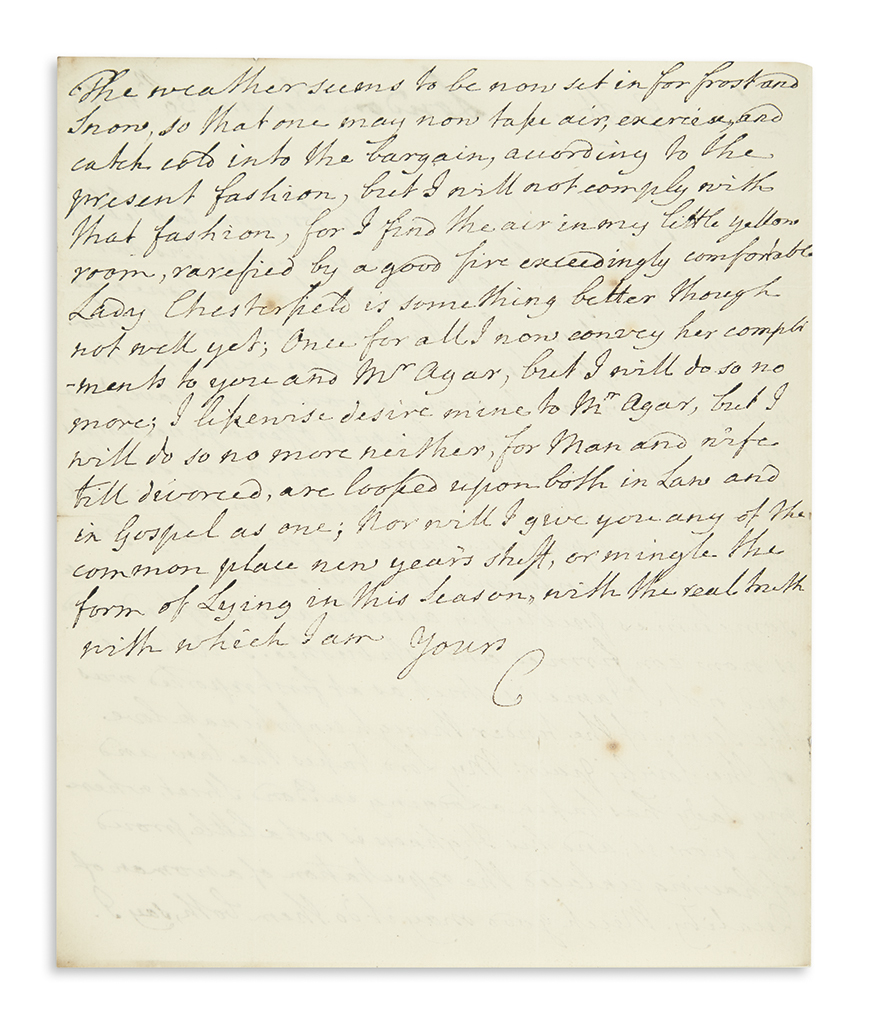 The weather seems to be now set in for frost and
Snow, so that one may now take air, exercise, and
catch cold into the bargain, according to the
present fashion, but I will not comply with
that fashion, for I find the air in my little yellow
room, rarefied by a good fire exceedingly comfortable
Lady Chesterfield is something better though
not well yet; Once for all I now convey her compli
-ments to you and Mr Agar, but I will do so no
more; I likewise desire mine to Mr Agar, but I
will do so no more neither, for Man and wife
till divorced, are looked upon both in Law and
in Gospel as one; Nor will I give you any of the
common place new year's stuff, or mingle the
form of Lying in this Season, with the real truth
with which I am Yours
C